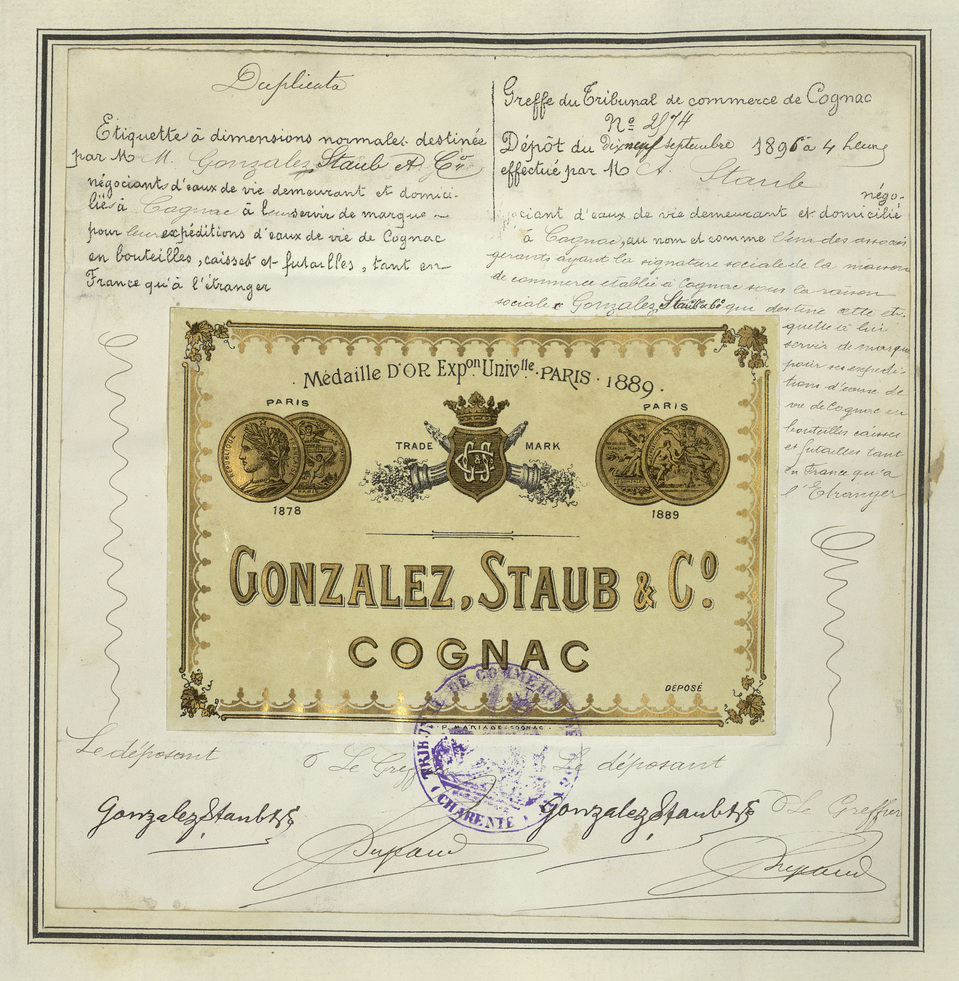 Duplicata
Etiquette à dimensions normales destinée
par M M. Gonzalez, Staub & Cie
négociants d'eaux de vie demeurant et domici-
liés à Cognac à leur servir de marque
pour leurs expéditions d'eaux de vie de Cognac
en bouteilles, caisses et futailles, tant en
France qu'à l'étranger
Greffe du Tribunal de commerce de Cognac
No 2574
Dépôt du dix neuf septembre 1896 à 4 heures
effectué par M A. Staub
négo-
ciant d'eaux de vie demeurant et domicilié
à Cognac, au nom et comme l'un des associés
gérants ayant la signature sociale de la maison
de commerce établie à Cognac sous la raison
sociale Gonzalez, Staub & Co qui destine cette éti-
quette à lui
servir de marque
pour ses expédi-
tions d'eaux de
vie de Cognac en
bouteilles caisses
et futailles tant
en France qu'à
l'Etranger
Médaille D'OR Expon Univlle PARIS · 1889 ·
PARIS
RÉPUBLIQUE
1878
TRADE MARK
PARIS
1889
GONZALEZ, STAUB & Co
COGNAC
DÉPOSÉ
P. MARIAGE-COGNAC
TRIBUNAL DE COMMERCE
(CHARENTE)
Le déposant
Le Greffier
Le déposant
Le Greffier
Gonzalez Staub & Co
Gonzalez Staub & Co